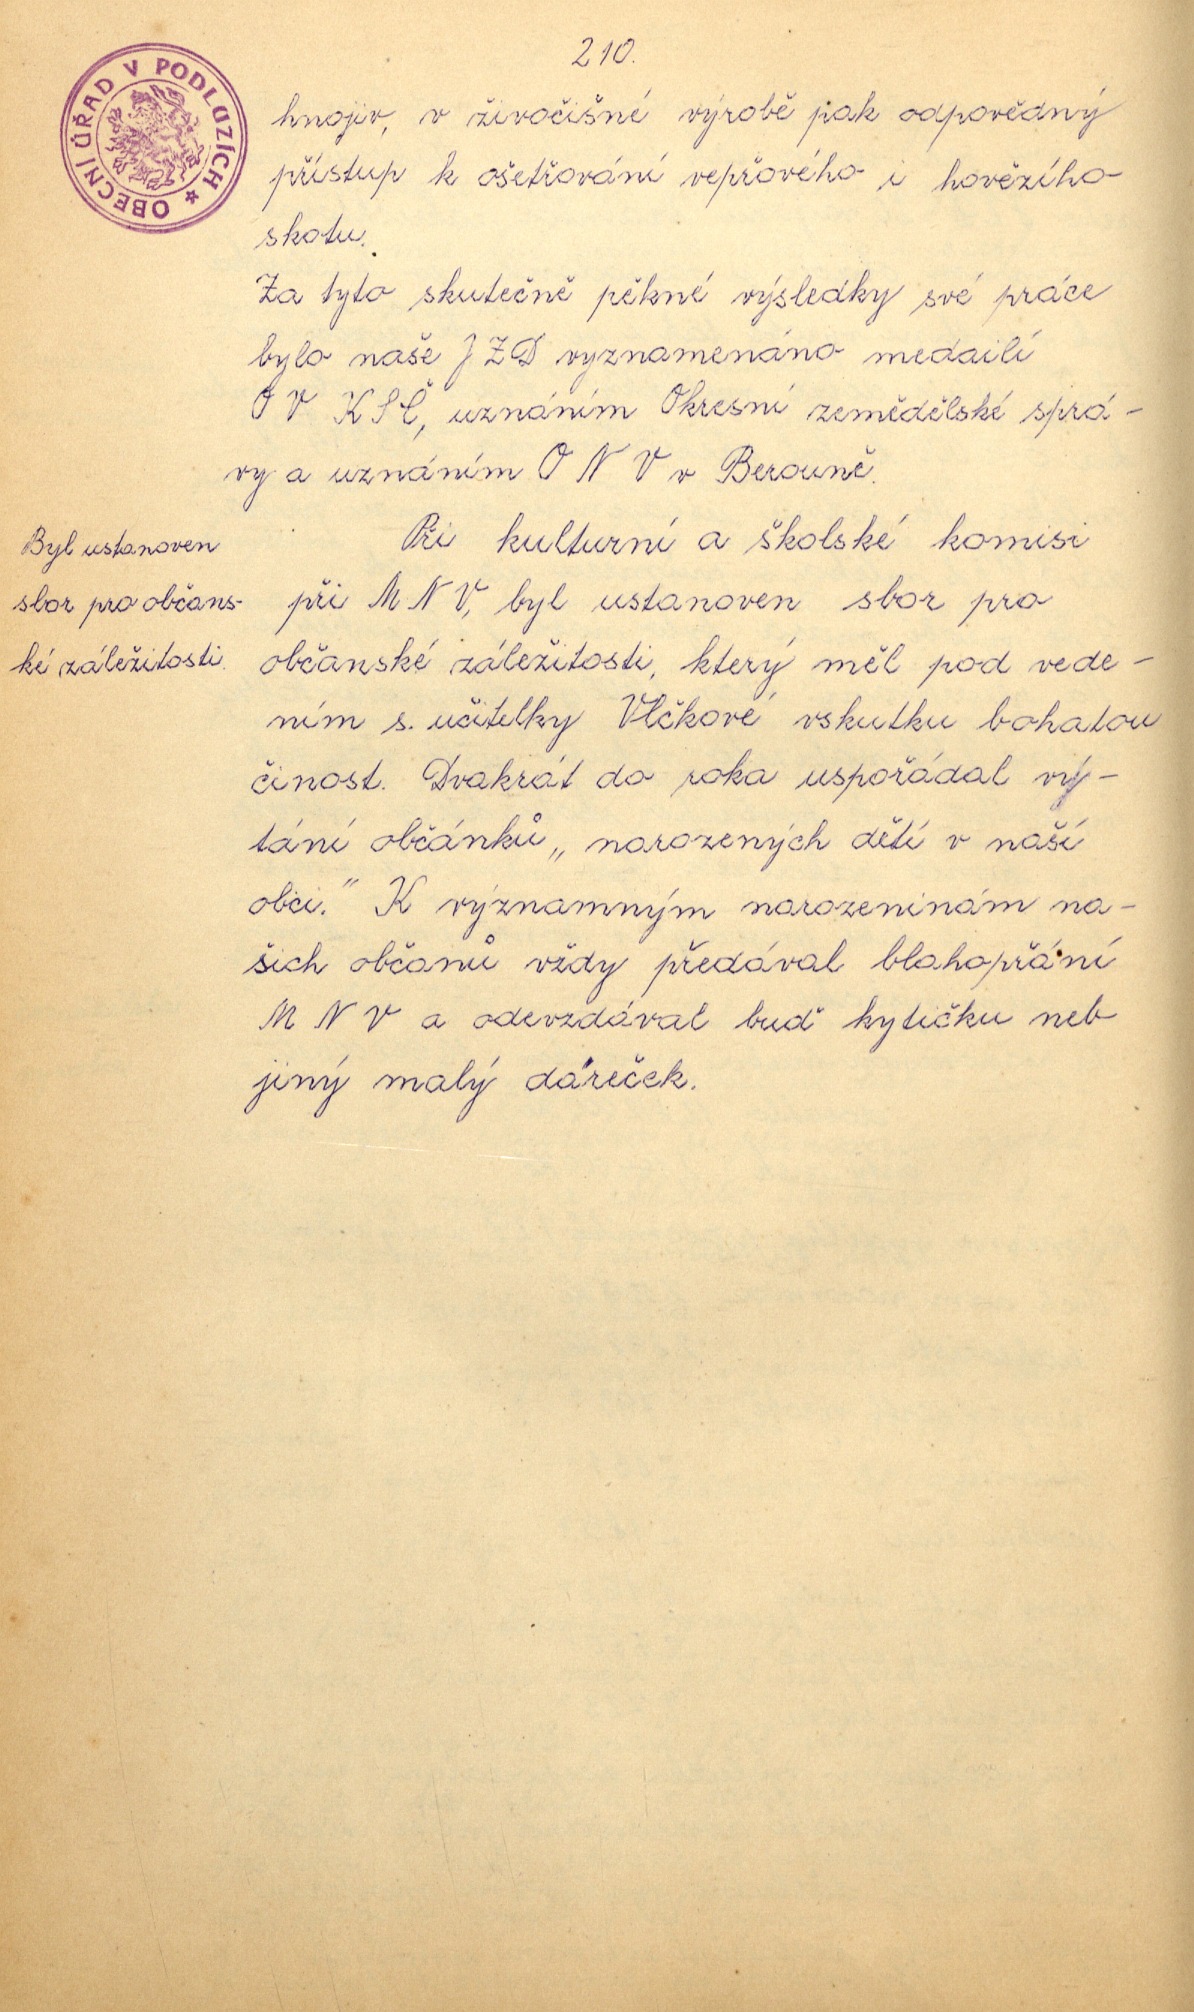 210.
OBECNÍ ÚŘAD V PODLUZÍCH *
hnojiv, v živočišné výrobě pak odpovědný
přístup k ošetřování vepřového i hovězího
skotu.
Za tyto skutečně pěkné výsledky své práce
bylo naše JZD vyznamenáno medailí
OV KSČ, uznáním Okresní zemědělské sprá-
vy a uznáním ONV v Berouně.
Byl ustanoven
sbor pro občans-
ké záležitosti.
Při kulturní a školské komisi
při MNV, byl ustanoven sbor pro
občanské záležitosti, který měl pod vede-
ním s. učitelky Vlčkové vskutku bohatou
činost. Dvakrát do roka uspořádal vý-
tání občánků „narozených dětí v naší
obci." K významným narozeninám na-
šich občanů vždy předával blahopřání
MNV a odevzdával buď kytičku neb
jiný malý dáreček.